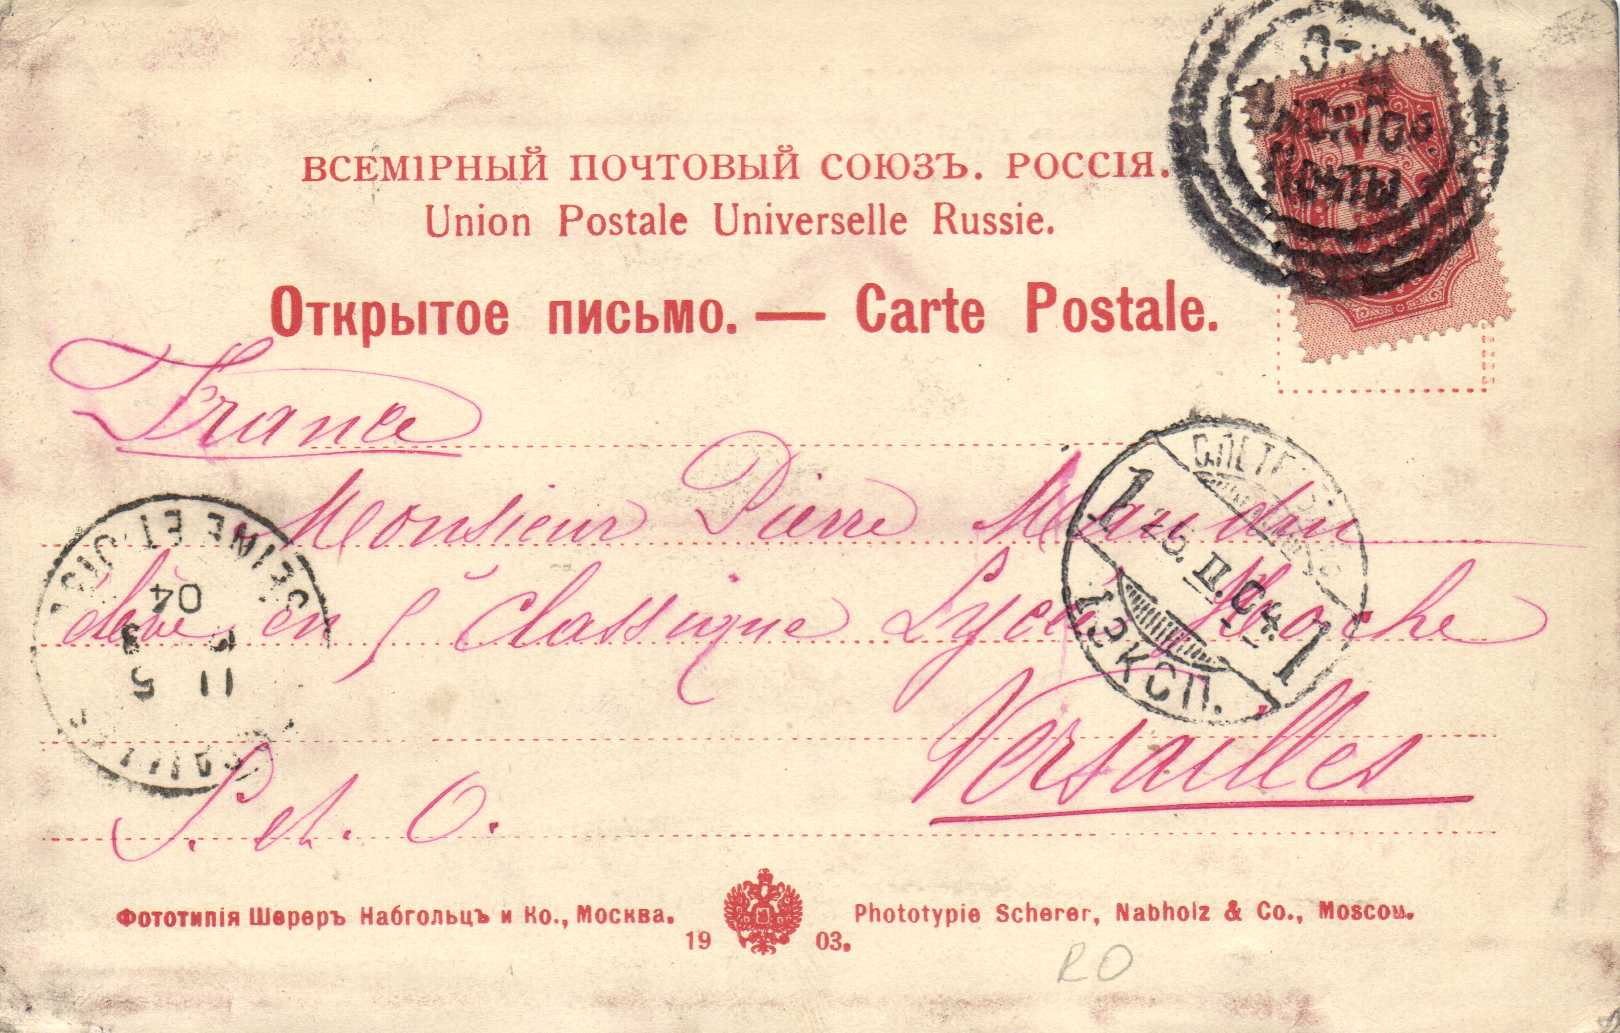 ВСЕМІРНЫЙ ПОЧТОВЫЙ СОЮЗЪ. РОССІЯ.
Union Postale Universelle Russie.
Открытое письмо. — Carte Postale.
France
Monsieur Pierre
élève en 5e Classique Lycée Hoche
Versailles
S. et. O.
1 25.II.04. 1
1 ЭКСП.
SEINE ET OISE
11 5
3
04
Фототипія Шереръ Набгольцъ и Ко., Москва.
Phototypie Scherer, Nabholz & Co., Moscou.
19 03.
RO